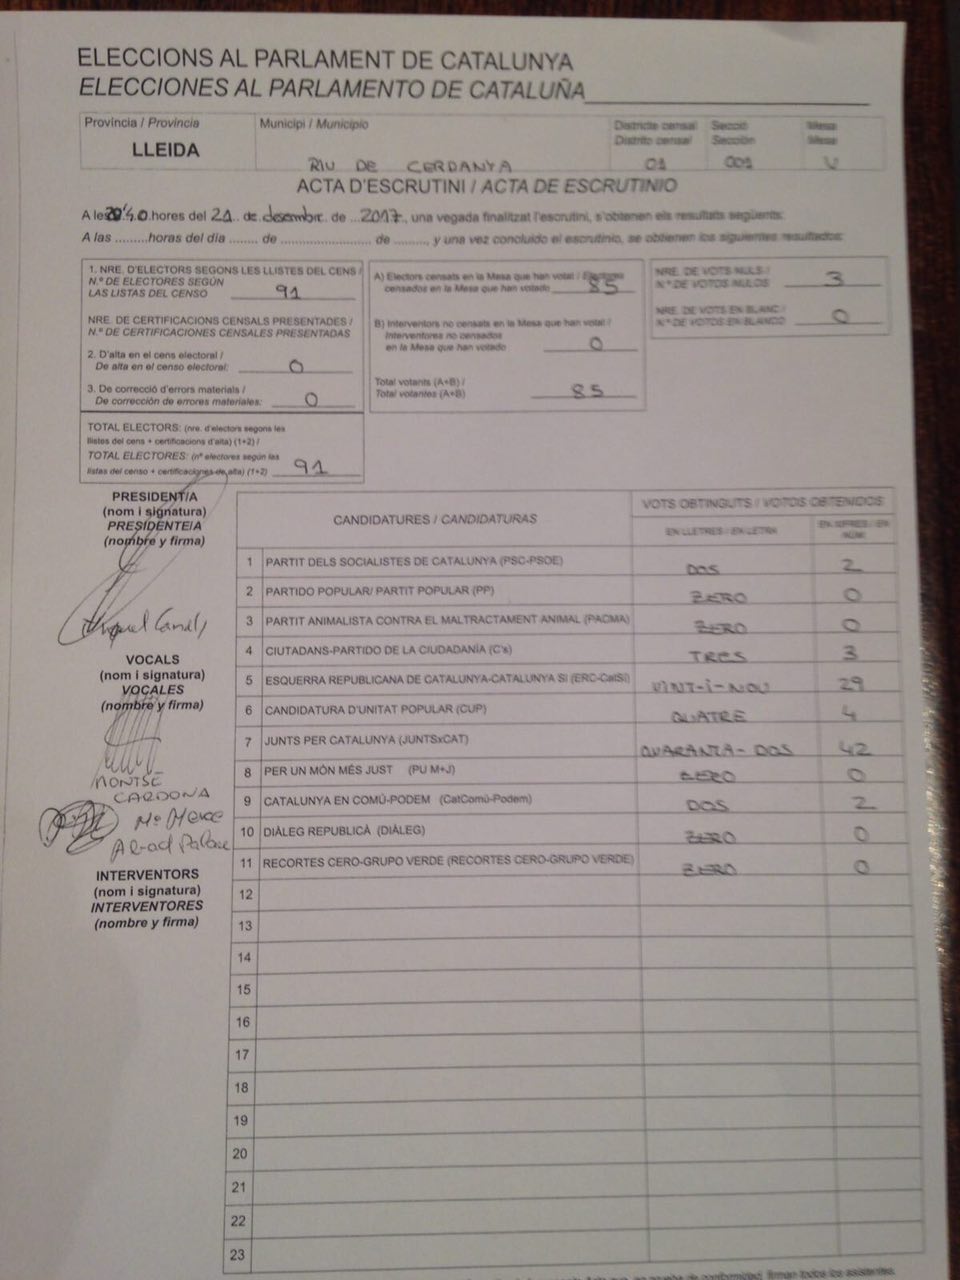 ELECCIONS AL PARLAMENT DE CATALUNYA
ELECCIONES AL PARLAMENTO DE CATALUÑA
Província / Provincia
LLEIDA
Municipi / Municipio
RIU DE CERDANYA
Districte censal
Distrito censal
01
Secció
Sección
001
Mesa
Mesa
U
ACTA D'ESCRUTINI / ACTA DE ESCRUTINIO
A les hores del 21 de desembre de 2017, una vegada finalitzat l'escrutini, s'obtenen els resultats següents:
A las .........horas del día ........ de .............................. de ........., y una vez concluido el escrutinio, se obtienen los siguientes resultados:
1. NRE. D'ELECTORS SEGONS LES LLISTES DEL CENS /
N.º DE ELECTORES SEGÚN
LAS LISTAS DEL CENSO 91
NRE. DE CERTIFICACIONS CENSALS PRESENTADES /
N.º DE CERTIFICACIONES CENSALES PRESENTADAS
2. D'alta en el cens electoral /
De alta en el censo electoral: 0
3. De correcció d'errors materials /
De corrección de errores materiales: 0
TOTAL ELECTORS: (nre. d'electors segons les
llistes del cens + certificacions d'alta) (1+2) /
TOTAL ELECTORES: (nº electores según las
listas del censo + certificaciones de alta) (1+2) 91
A) Electors censats en la Mesa que han votat / Electores
censados en la Mesa que han votado 85
B) Interventors no censats en la Mesa que han votat /
Interventores no censados
en la Mesa que han votado 0
Total votants (A+B) /
Total votantes (A+B) 85
NRE. DE VOTS NULS /
N.º DE VOTOS NULOS 3
NRE. DE VOTS EN BLANC /
N.º DE VOTOS EN BLANCO 0
PRESIDENT/A
(nom i signatura)
PRESIDENTE/A
(nombre y firma)
VOCALS
(nom i signatura)
VOCALES
(nombre y firma)
MONTSE
CARDONA
Mª
INTERVENTORS
(nom i signatura)
INTERVENTORES
(nombre y firma)
CANDIDATURES / CANDIDATURAS
VOTS OBTINGUTS / VOTOS OBTENIDOS
EN LLETRES / EN LETRA
EN XIFRES / EN
NÚM.
1 PARTIT DELS SOCIALISTES DE CATALUNYA (PSC-PSOE) DOS 2
2 PARTIDO POPULAR/ PARTIT POPULAR (PP) ZERO 0
3 PARTIT ANIMALISTA CONTRA EL MALTRACTAMENT ANIMAL (PACMA) ZERO 0
4 CIUTADANS-PARTIDO DE LA CIUDADANÍA (C's) TRES 3
5 ESQUERRA REPUBLICANA DE CATALUNYA-CATALUNYA SÍ (ERC-CatSí) VINT-I-NOU 29
6 CANDIDATURA D'UNITAT POPULAR (CUP) QUATRE 4
7 JUNTS PER CATALUNYA (JUNTSxCAT) QUARANTA-DOS 42
8 PER UN MÓN MÉS JUST (PU M+J) ZERO 0
9 CATALUNYA EN COMÚ-PODEM (CatComú-Podem) DOS 2
10 DIÀLEG REPUBLICÀ (DIÀLEG) ZERO 0
11 RECORTES CERO-GRUPO VERDE (RECORTES CERO-GRUPO VERDE) ZERO 0
12
13
14
15
16
17
18
19
20
21
22
23